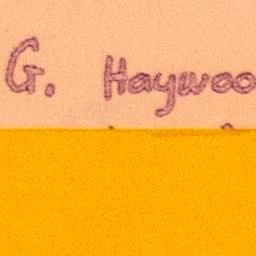 G. Haywoo